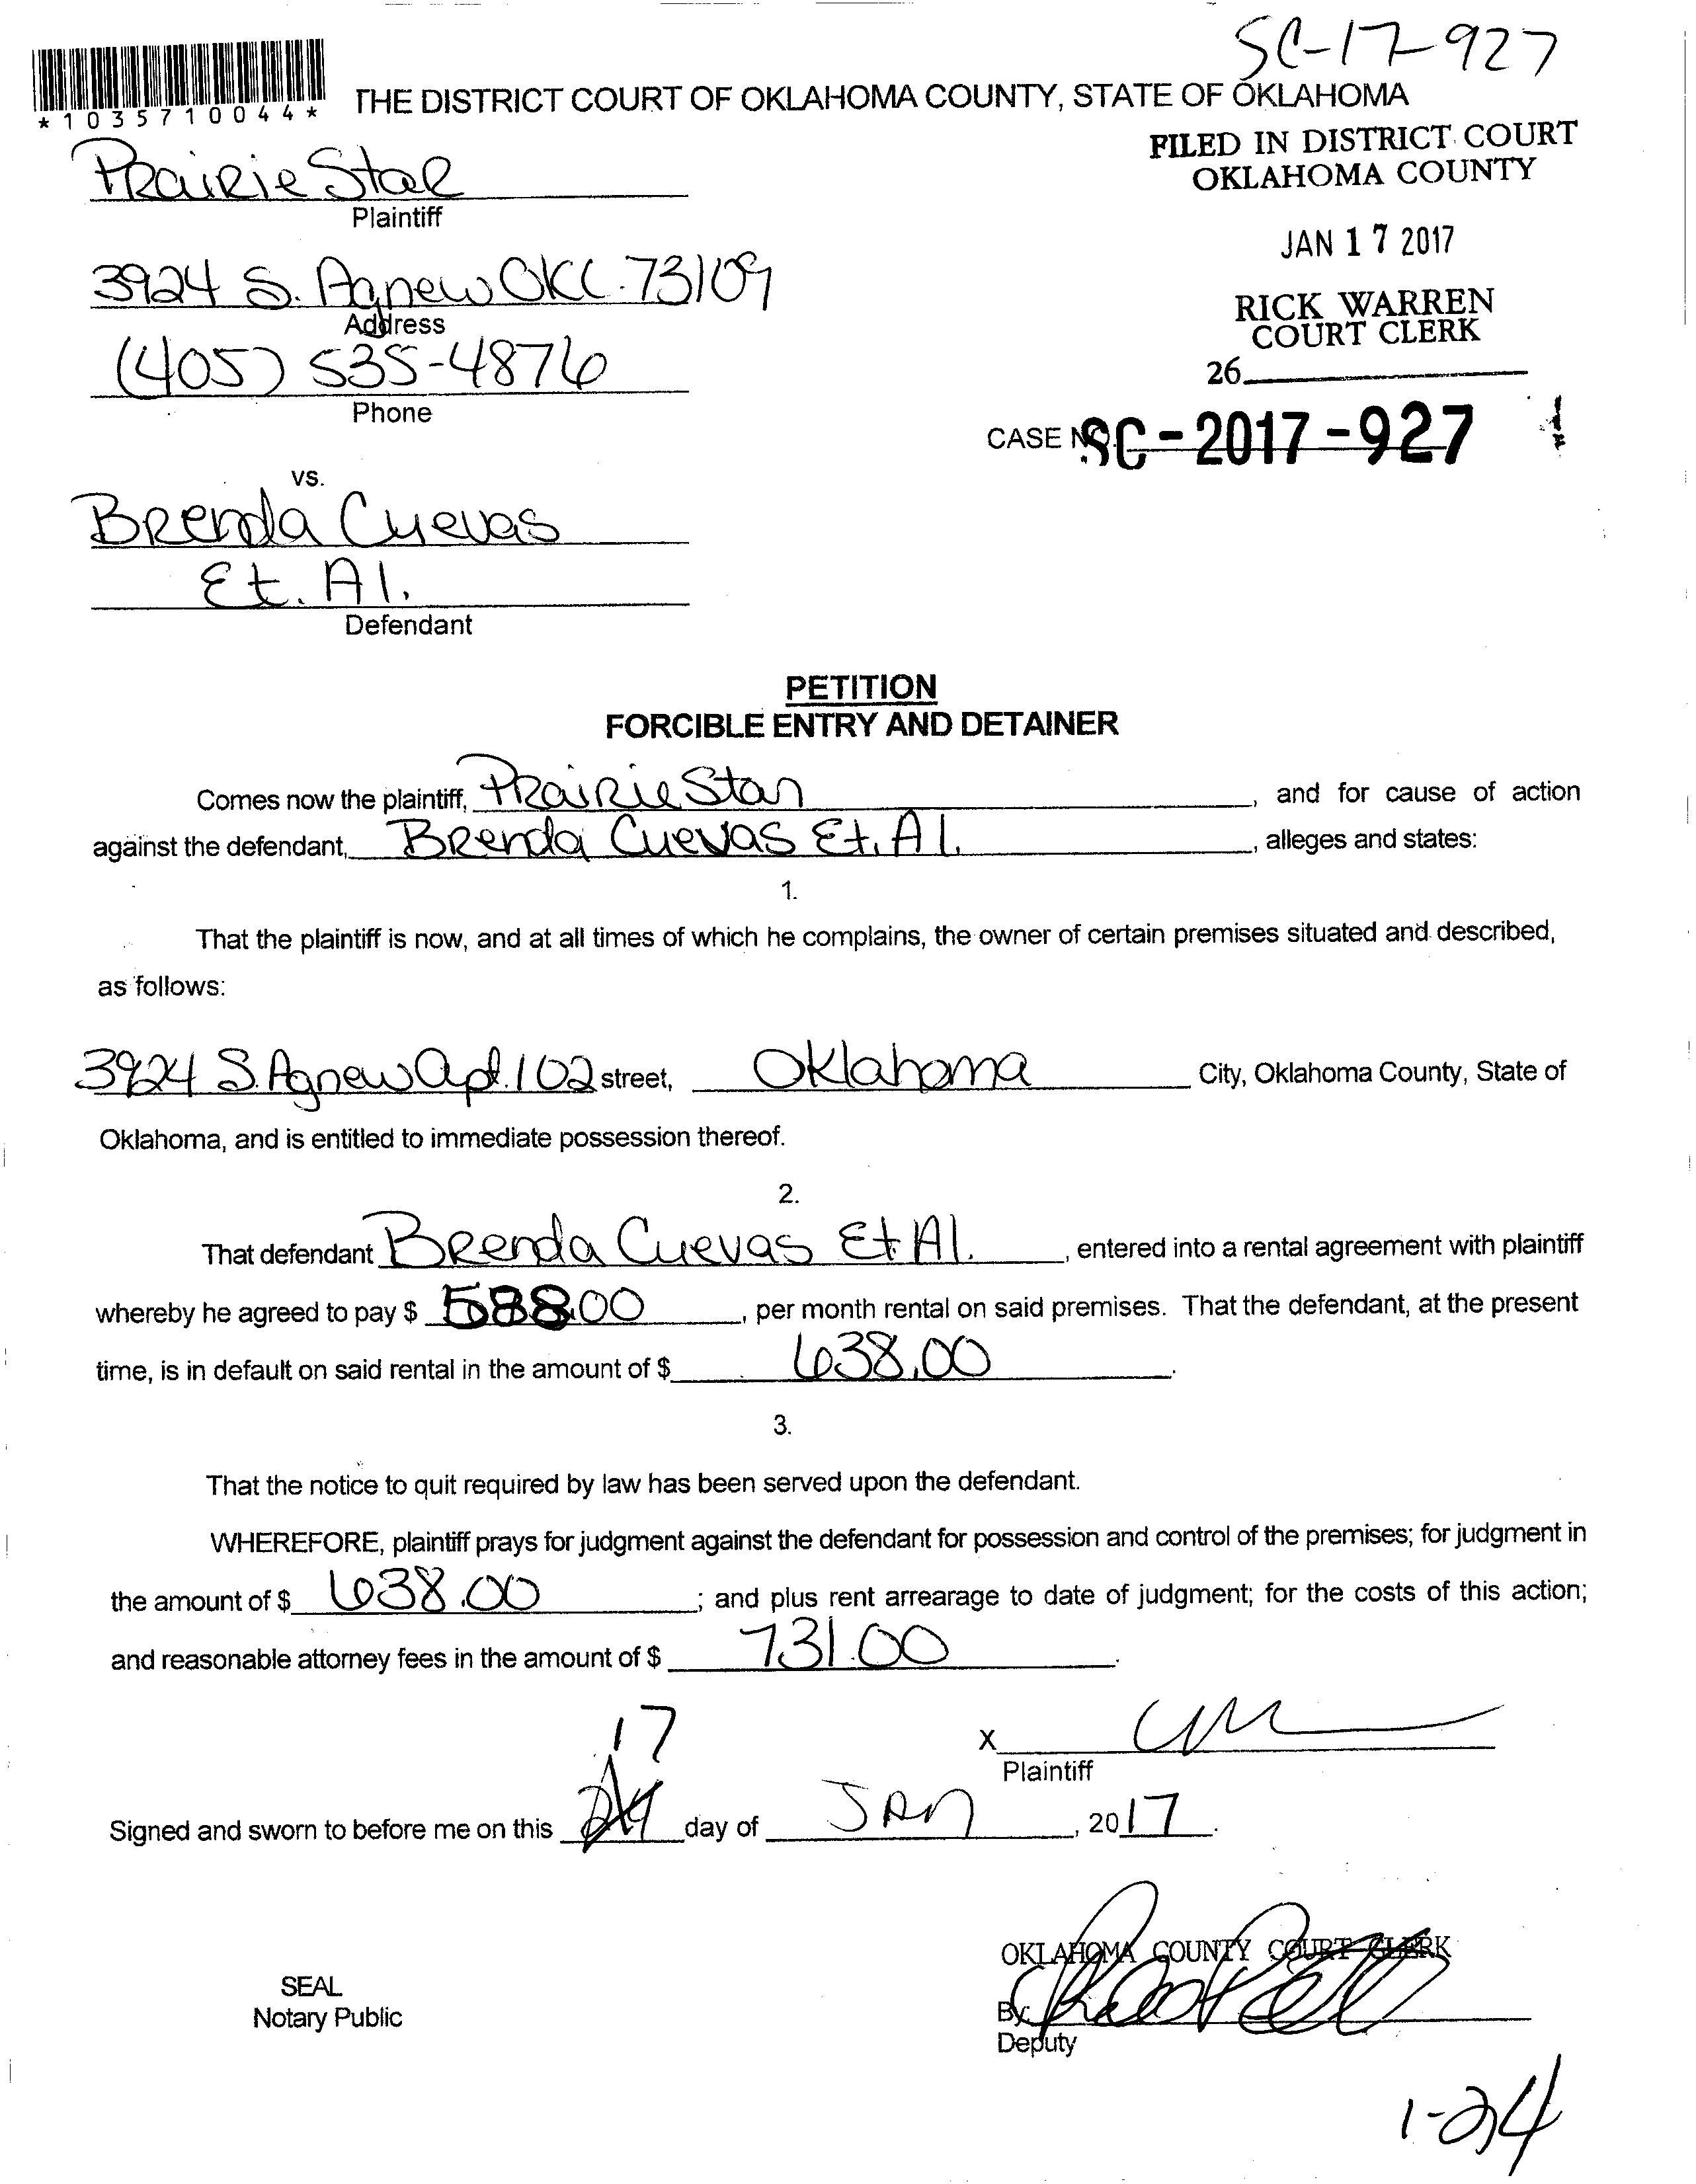 SC-17-927
*1035710044*
THE DISTRICT COURT OF OKLAHOMA COUNTY, STATE OF OKLAHOMA
FILED IN DISTRICT COURT
OKLAHOMA COUNTY
JAN 17 2017
RICK WARREN
COURT CLERK
26
CASE NO. SC-2017-927
Prairie Star
Plaintiff
3924 S. Agnew OKC. 73109
Address
(405) 535-4876
Phone
vs.
Brenda Cuevas
Et. Al.
Defendant
PETITION
FORCIBLE ENTRY AND DETAINER
Comes now the plaintiff, Prairie Star, and for cause of action
against the defendant, Brenda Cuevas Et. Al., alleges and states:
1.
That the plaintiff is now, and at all times of which he complains, the owner of certain premises situated and described,
as follows:
3924 S. Agnew apt. 102 street, Oklahoma City, Oklahoma County, State of
Oklahoma, and is entitled to immediate possession thereof.
2.
That defendant Brenda Cuevas Et Al., entered into a rental agreement with plaintiff
whereby he agreed to pay $ 588.00, per month rental on said premises. That the defendant, at the present
time, is in default on said rental in the amount of $ 638.00.
3.
That the notice to quit required by law has been served upon the defendant.
WHEREFORE, plaintiff prays for judgment against the defendant for possession and control of the premises; for judgment in
the amount of $ 638.00; and plus rent arrearage to date of judgment; for the costs of this action;
and reasonable attorney fees in the amount of $ 731.00.
X
Plaintiff
17
Signed and sworn to before me on this 24 day of Jan, 2017.
OKLAHOMA COUNTY COURT CLERK
SEAL
Notary Public
By
Deputy
1-24